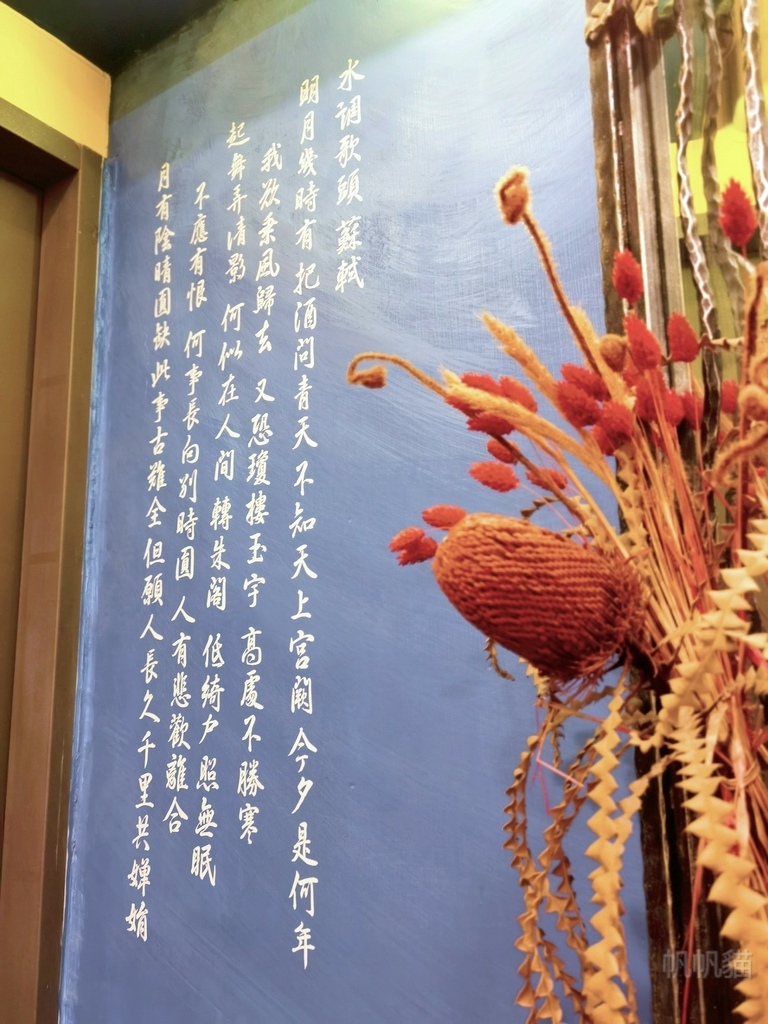 水調歌頭 蘇軾
明月幾時有把酒問青天不知天上宮闕今夕是何年
我欲乘風歸去 又恐瓊樓玉宇 高處不勝寒
起舞弄清影 何似在人間轉朱閣 低綺戶照無眠
不應有恨 何事長向別時圓 人有悲歡離合
月有陰晴圓缺此事古難全但願人長久千里共嬋娟
帆帆貓